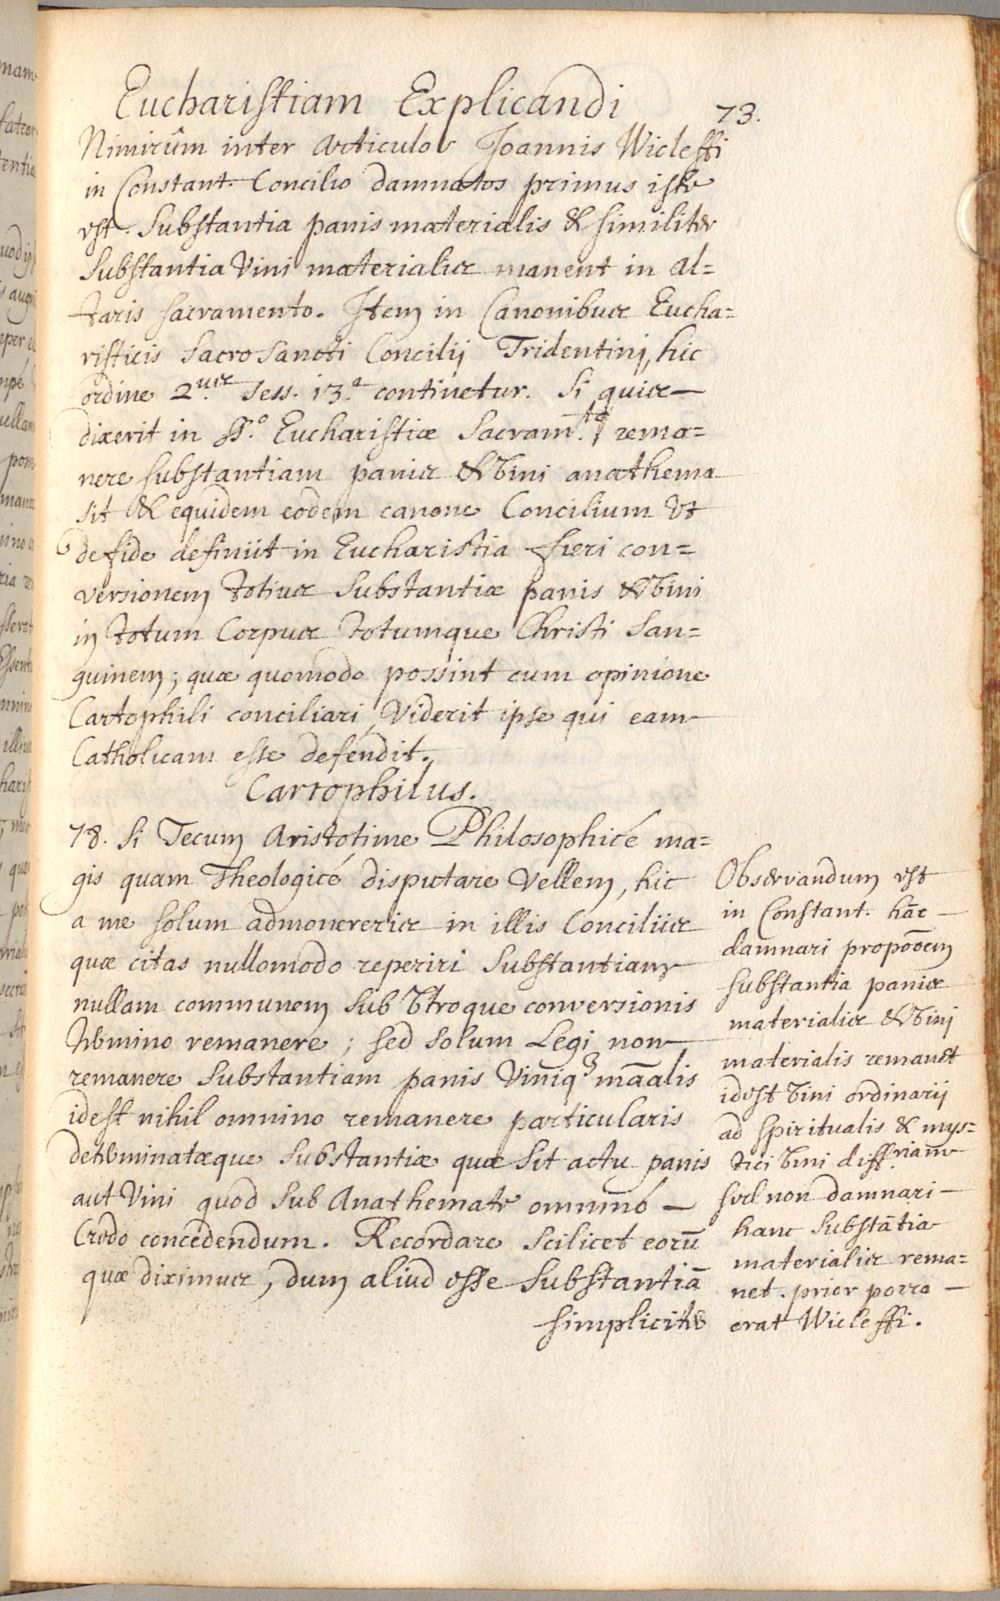 Eucharistiam Explicandi
73.
Nimirûm inter Articulos Joannis Wicleffi
in Constant. Concilio damnatos primus iste
est. Substantia panis materialis & similiter
Substantia Vini materialis manent in Al=
taris sacramento. Item in Canonibus Eucha=
risticis Sacro Sancti Concilij Tridentini, hic
ordine 2.us Sess. 13.a continetur. Si quis
dixerit in SS.o Eucharistiæ Sacram.to rema=
nere substantiam panis & Vini anathema
sit & equidem eodem canone Concilium Vt
de fide definiit in Eucharistia fieri con=
versionem totius Substantiæ panis & Vini
in totum Corpus totumque Christi San=
guinem; quæ quomodo possint cum opinione
Cartophili conciliari, Viderit ipse qui eam
Catholicam esse defendit.
Cartophilus.
78. Si Tecum Aristotime Philosophicé ma=
gis quam Theologicé disputare Vellem, hic
a me solum admonereris in illis Conciliis
quæ citas nullomodo reperiri Substantiam
nullam communem sub Vtroque conversionis
termino remanere; sed solum Legi non
remanere Substantiam panis Viniq3 mãalis
idest nihil omnino remanere particularis
determinatæque Substantiæ quæ sit actu panis
aut Vini quod sub Anathemate omninó
Credo concedendum. Recordare scilicet eorũ
quæ diximus, dum aliud esse Substantiã
simpliciter
Observandum est
in Constant. hãc
damnari propõoem
substantia panis
materialis & Vini
materialis remanet
idest Vini ordinarij
ad spiritualis & mys=
tici Vini diff.niam
sed non damnari
hanc Substãtia
materialis rema=
net. prior porro
erat Wicleffi.